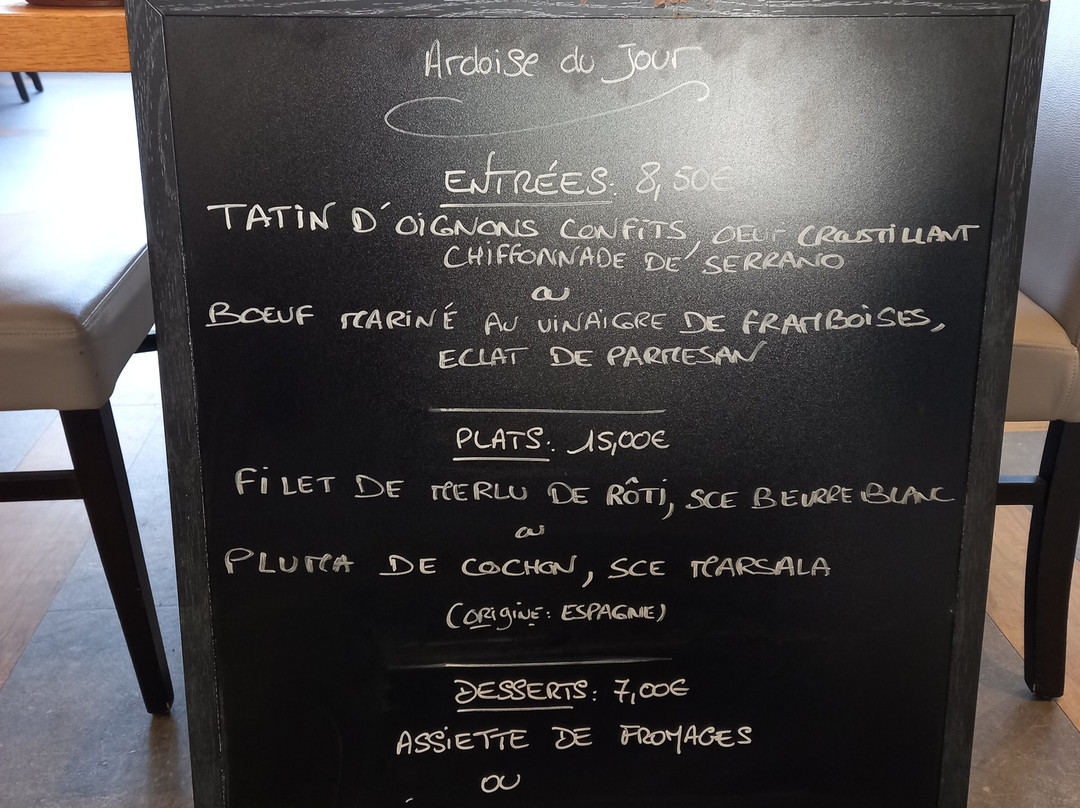 Ardoise du Jour
ENTRÉES: 8,50€
TATIN D'OIGNONS CONFITS, OEUF CROUSTILLANT
CHIFFONNADE DE SERRANO
ou
BOEUF MARINÉ AU VINAIGRE DE FRAMBOISES,
ECLAT DE PARMESAN
PLATS: 15,00€
FILET DE MERLU DE RÔTI, SCE BEURRE BLANC
ou
PLUMA DE COCHON, SCE MARSALA
(ORIGINE: ESPAGNE)
DESSERTS: 7,00€
ASSIETTE DE FROMAGES
OU